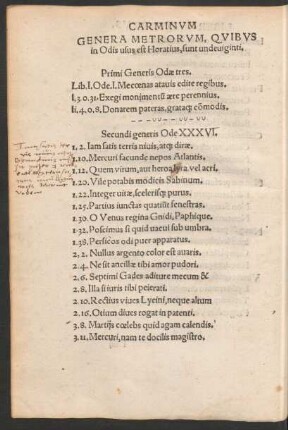 CARMINVM
GENERA METRORVM, QVIBVS
in Odis usus est Horatius, sunt undeuiginti.
Primi Generis Odæ tres.
Lib. I. Ode. I. Mecœnas atauis edite regibus.
I. 3 0. 31. Exegi monimentū ære perennius.
li. 4. 0. 8. Donarem pateras, grataq; cōmodis.
Secundi generis Ode XXXVI.
1. 2. Iam satis terris niuis, atq; diræ.
1. 10. Mercuri facunde nepos Atlantis.
1. 12. Quem virum, aut heroa lyra vel acri.
1. 20. Vile potabis modicis Sabinum.
1. 22. Integer uitæ, scelerisq; purus.
1. 25. Partius iunctas quatiūt fenestras.
1. 30. O Venus regina Gnidi, Paphique.
1. 32. Poscimus si quid uacui sub umbra.
1. 38. Persicos odi puer apparatus.
2. 2. Nullus argento color est auaris.
2. 4. Ne sit ancillæ tibi amor pudori.
2. 6. Septimi Gades aditure mecum &
2. 8. Vlla si iuris tibi peierati.
2. 10. Rectius viues Lycini, neque altum
2. 16. Otium diues rogat in patenti.
3. 8. Martijs cœlebs quid agam calendis.
3. 11. Mercuri, nam te docilis magistro.